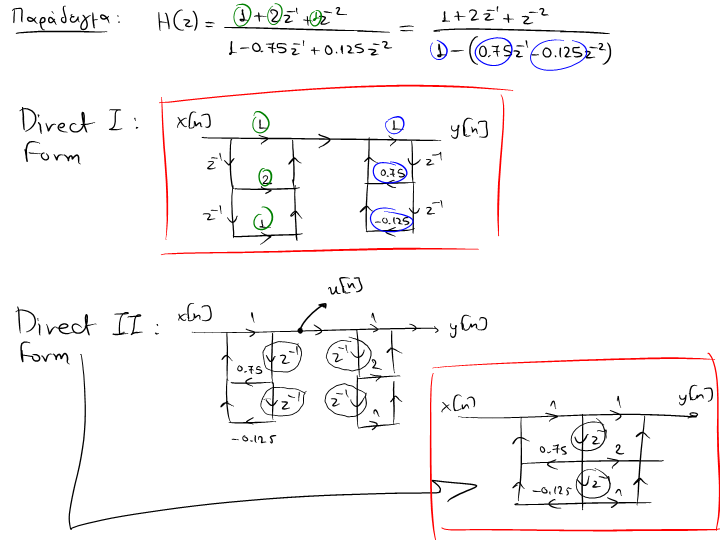 Παράδειγμα: H(z) = (1 + 2z⁻¹ + 1z⁻²) / (1 - 0.75z⁻¹ + 0.125z⁻²) = (1 + 2z⁻¹ + z⁻²) / (1 - (0.75z⁻¹ - 0.125z⁻²))
Direct I :
Form
x[n] 1 1 y[n]
z⁻¹ 2 0.75 z⁻¹
z⁻¹ 1 -0.125 z⁻¹
u[n]
Direct II :
Form
x[n] 1 1 y[n]
0.75 z⁻¹ z⁻¹ 2
z⁻¹ z⁻¹ 1
-0.125
x[n] 1 1 y[n]
0.75 z⁻¹ 2
-0.125 z⁻¹ 1